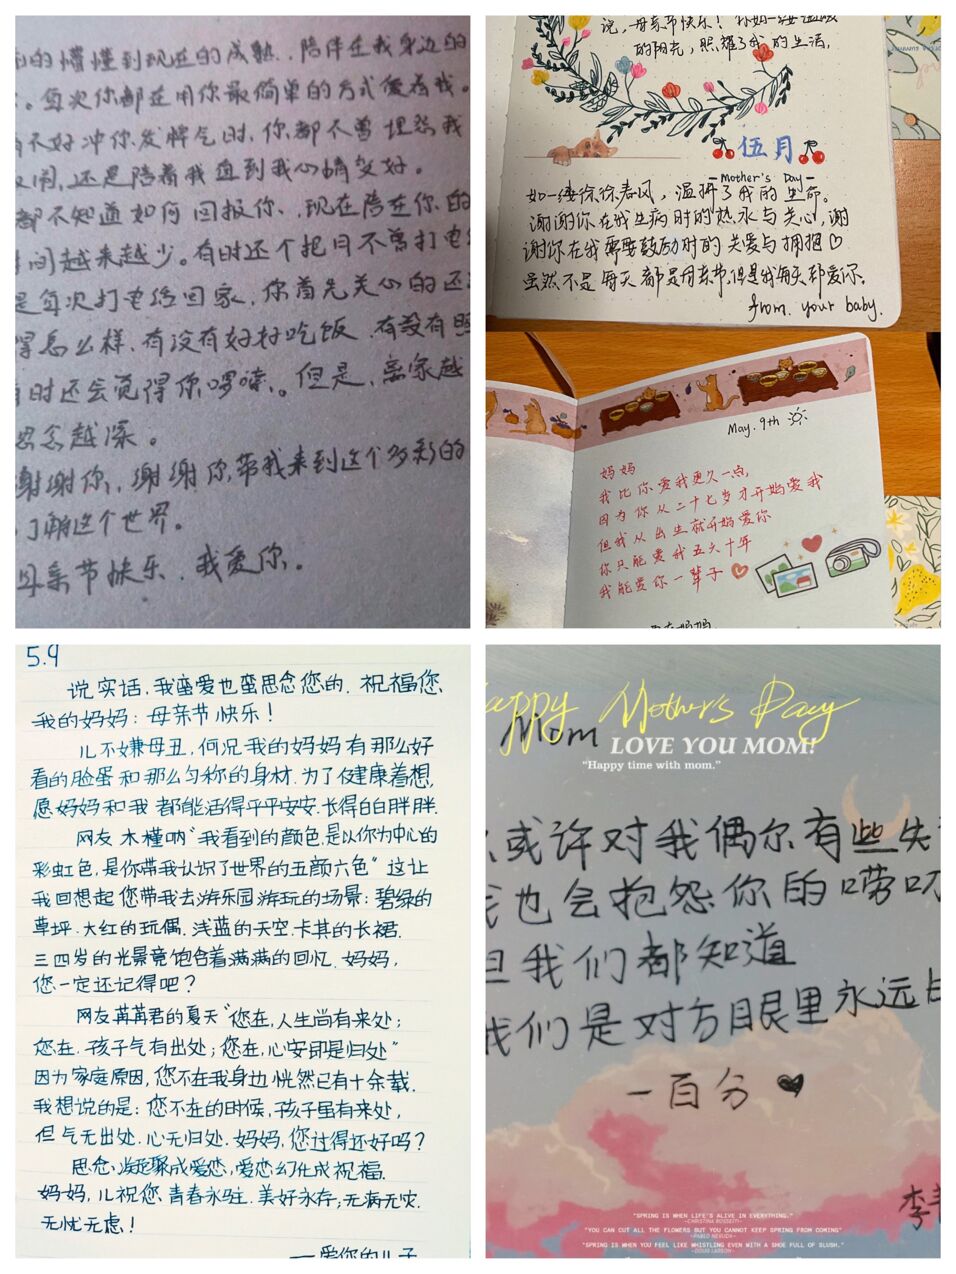 的懵懂到现在的成熟、陪伴在我身边的
。每次你都在用你最简单的方式爱着我。
不好冲你发脾气时，你都不曾埋怨我
闹，还是陪着我直到我心情变好。
都不知道如何回报你、现在陪在你的
间越来越少。有时还个把月不曾打电
是每次打电给回家，你首先关心的还
得怎么样，有没有好好吃饭，有没有
时还会觉得你啰嗦、。但是、离家越
思念越深。
谢谢你，谢谢你，带我来到这个多彩的
了解这个世界。
母亲节快乐、我爱你。
说，母亲节快乐！你如一缕温暖
的阳光，照耀了我的生活，
伍月
-Mother's Day-
如一缕徐徐春风，温拂了我的生命。
谢谢你在我生病时的热水与关心，谢
谢你在我需要鼓励时的关爱与拥抱♡
虽然不是每天都是母亲节，但是我每天都爱你。
from. your baby.
May. 9th
妈妈
我比你爱我更久一点，
因为你从二十七岁才开始爱我
但我从出生就开始爱你
你只能爱我五六十年
我能爱你一辈子
5.9
说实话，我蛮爱也蛮思念您的，祝福您，
我的妈妈：母亲节快乐！
儿不嫌母丑，何况我的妈妈有那么好
看的脸蛋和那么匀称的身材，为了健康着想，
愿妈妈和我都能活得平平安安、长得白白胖胖.
网友木槿呐“我看到的颜色，是以你为中心的
彩虹色，是你带我认识了世界的五颜六色”这让
我回想起您带我去游乐园游玩的场景：碧绿的
草坪、大红的玩偶、浅蓝的天空、卡其的长裙，
三四岁的光景竟饱含着满满的回忆，妈妈，
您一定还记得吧？
网友苒苒君的夏天“您在，人生尚有来处；
您在，孩子气有出处；您在，心安即是归处”
因为家庭原因，您不在我身边恍然已有十余载，
我想说的是：您不在的时候，孩子虽有来处，
但气无出处，心无归处，妈妈，您过得还好吗？
思念，凝聚成爱恋，爱恋幻化成祝福，
妈妈，儿祝您，青春永驻，美好永存，无病无灾，
无忧无虑！
—爱你的儿子
Happy Mother's Day
Mom
LOVE YOU MOM!
“Happy time with mom.”
或许对我偶尔有些失
也会抱怨你的唠叨
但我们都知道
我们是对方眼里永远
一百分
李
"SPRING IS WHEN LIFE'S ALIVE IN EVERYTHING."
—CHRISTINA ROSSETTI—
"YOU CAN CUT ALL THE FLOWERS BUT YOU CANNOT KEEP SPRING FROM COMING"
—PABLO NERUDA—
"SPRING IS WHEN YOU FEEL LIKE WHISTLING EVEN WITH A SHOE FULL OF SLUSH."
—DOUG LARSON—